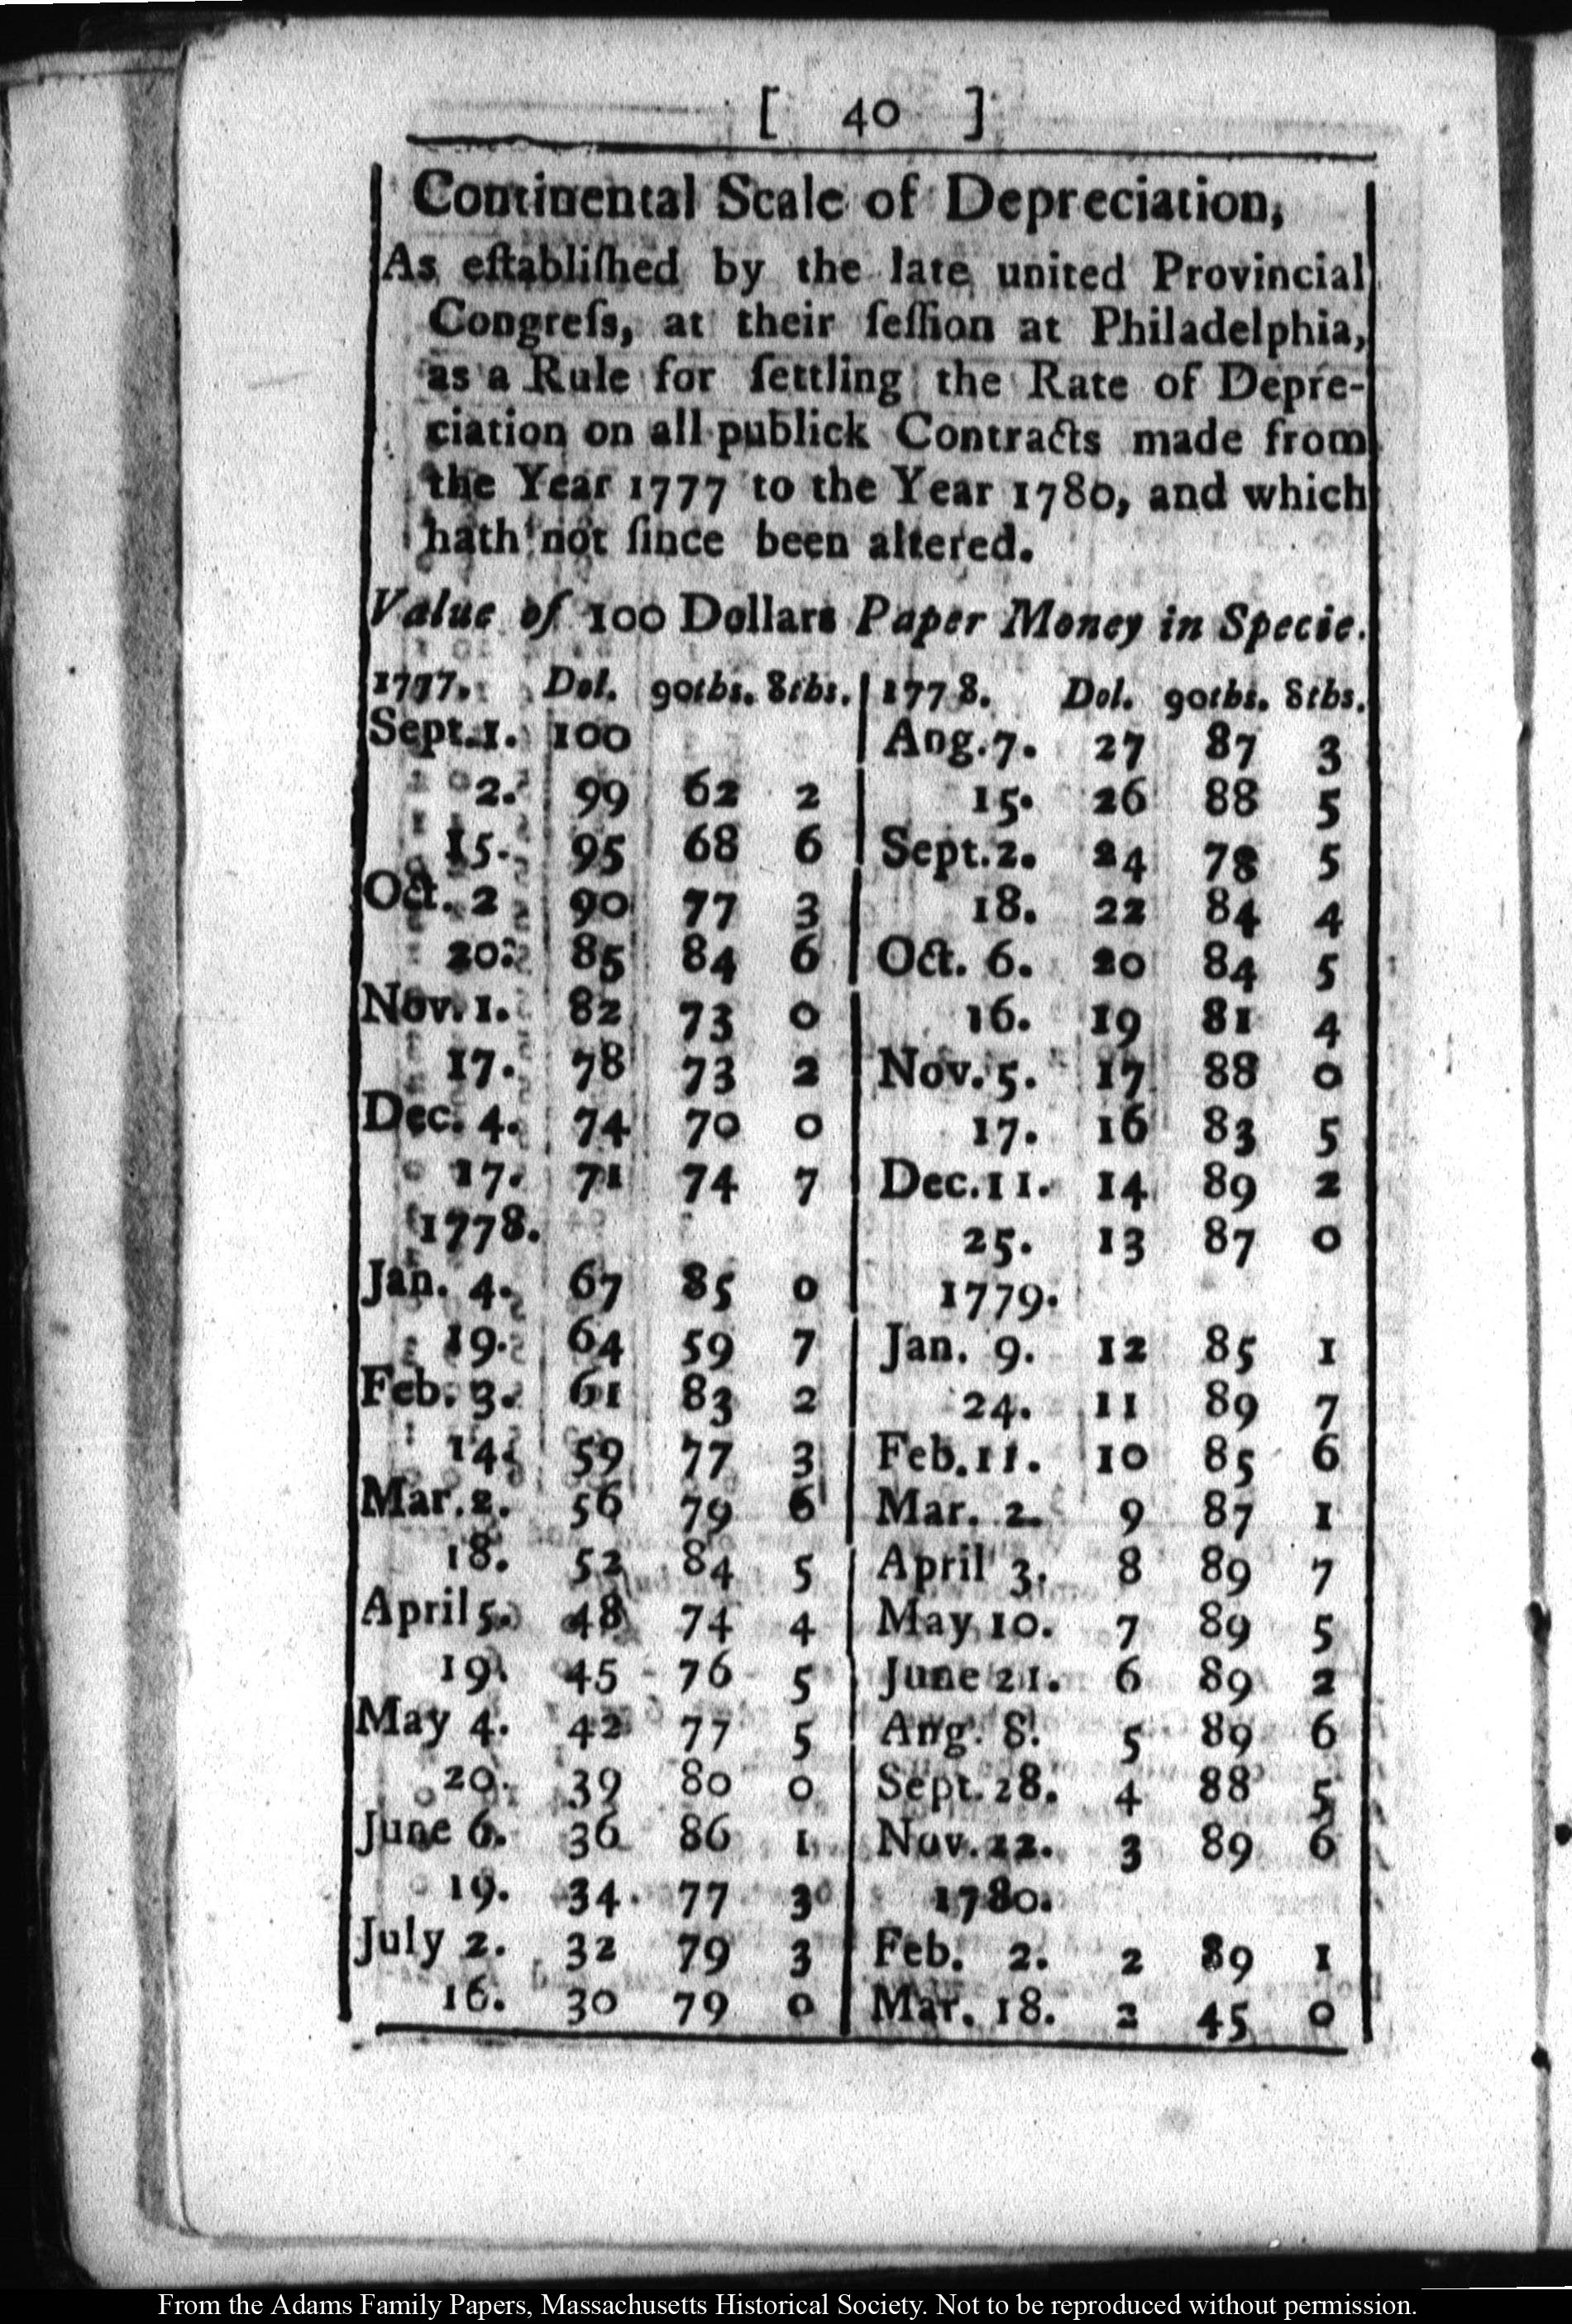 [ 40 ]
Continental Scale of Depreciation,
As eſtabliſhed by the late united Provincial
Congreſs, at their ſeſſion at Philadelphia,
as a Rule for ſettling the Rate of Depre-
ciation on all publick Contracts made from
the Year 1777 to the Year 1780, and which
hath not ſince been altered.
Value of 100 Dollars Paper Money in Specie.
1777. Dol. 90ths. 8ths.
Sept. 1. 100
2. 99 62 2
15. 95 68 6
Oct. 2 90 77 3
20. 85 84 6
Nov. 1. 82 73 0
17. 78 73 2
Dec. 4. 74 70 0
17. 71 74 7
1778.
Jan. 4. 67 85 0
19. 64 59 7
Feb. 3. 61 83 2
14. 59 77 3
Mar. 2. 56 79 6
18. 52 84 5
April 5. 48 74 4
19. 45 76 5
May 4. 42 77 5
20. 39 80 0
June 6. 36 86 1
19. 34 77 3
July 2. 32 79 3
16. 30 79 0
1778. Dol. 90ths. 8ths.
Aug. 7. 27 87 3
15. 26 88 5
Sept. 2. 24 78 5
18. 22 84 4
Oct. 6. 20 84 5
16. 19 81 4
Nov. 5. 17 88 0
17. 16 83 5
Dec. 11. 14 89 2
25. 13 87 0
1779.
Jan. 9. 12 85 1
24. 11 89 7
Feb. 11. 10 85 6
Mar. 2. 9 87 1
April 3. 8 89 7
May 10. 7 89 5
June 21. 6 89 2
Aug. 8. 5 89 6
Sept. 28. 4 88 5
Nov. 22. 3 89 6
1780.
Feb. 2. 2 89 1
Mar. 18. 2 45 0
From the Adams Family Papers, Massachusetts Historical Society. Not to be reproduced without permission.